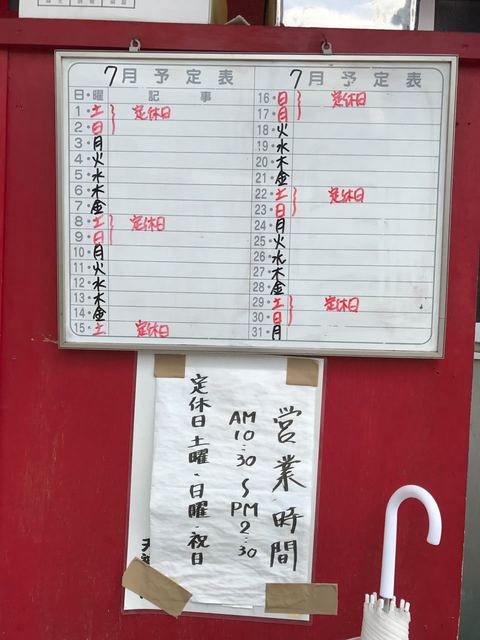 7月予定表
日・曜 記事
1・土 定休日
2・日
3・月
4・火
5・水
6・木
7・金
8・土 定休日
9・日
10・月
11・火
12・水
13・木
14・金
15・土 定休日
7月予定表
16・日 定休日
17・月
18・火
19・水
20・木
21・金
22・土 定休日
23・日
24・月
25・火
26・水
27・木
28・金
29・土 定休日
30・日
31・月
営業時間
AM10:30〜PM2:30
定休日土曜・日曜・祝日